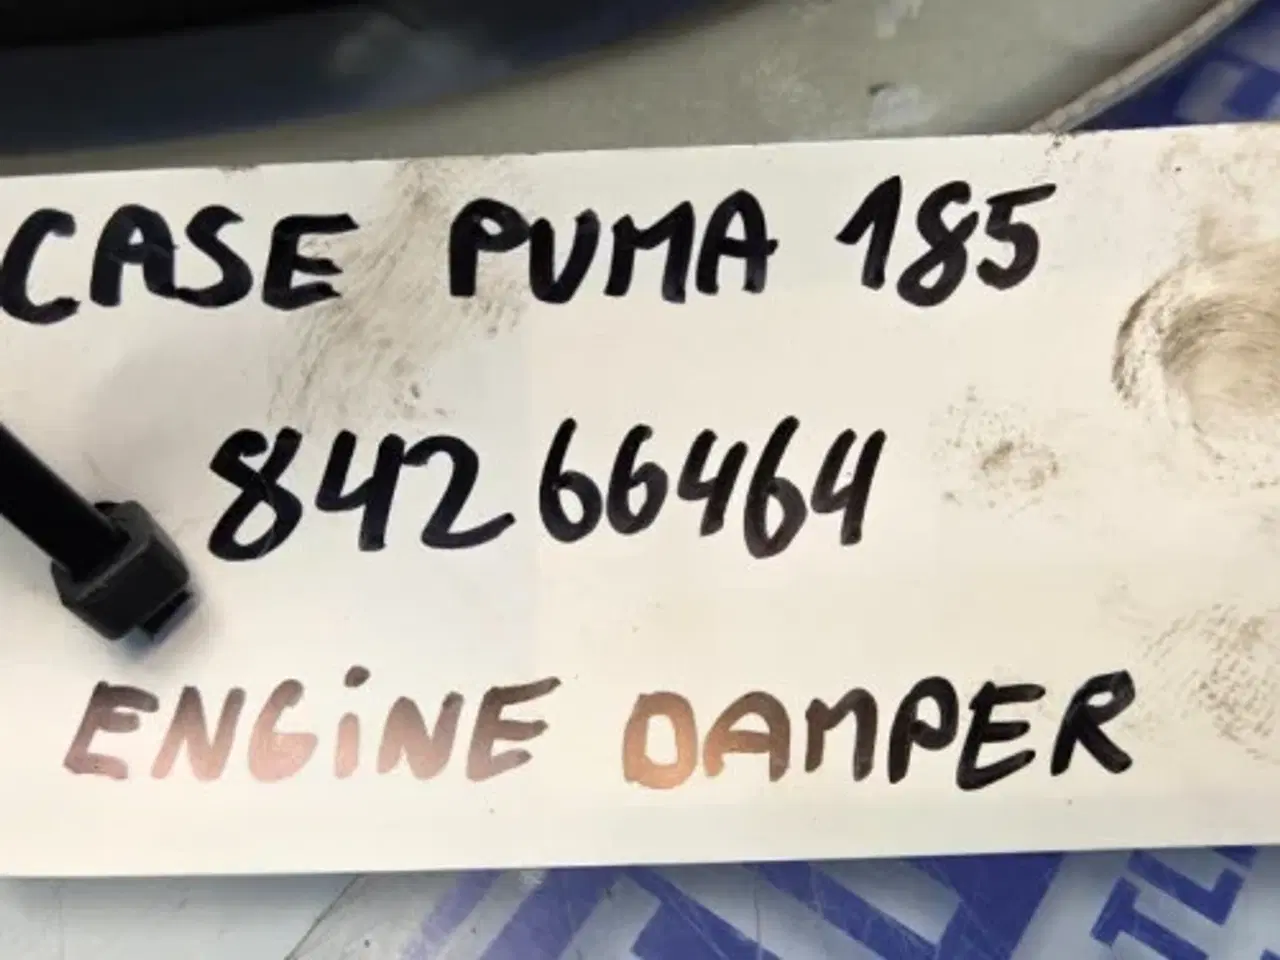 CASE PUMA 185
84266464
ENGiNE DAMPER